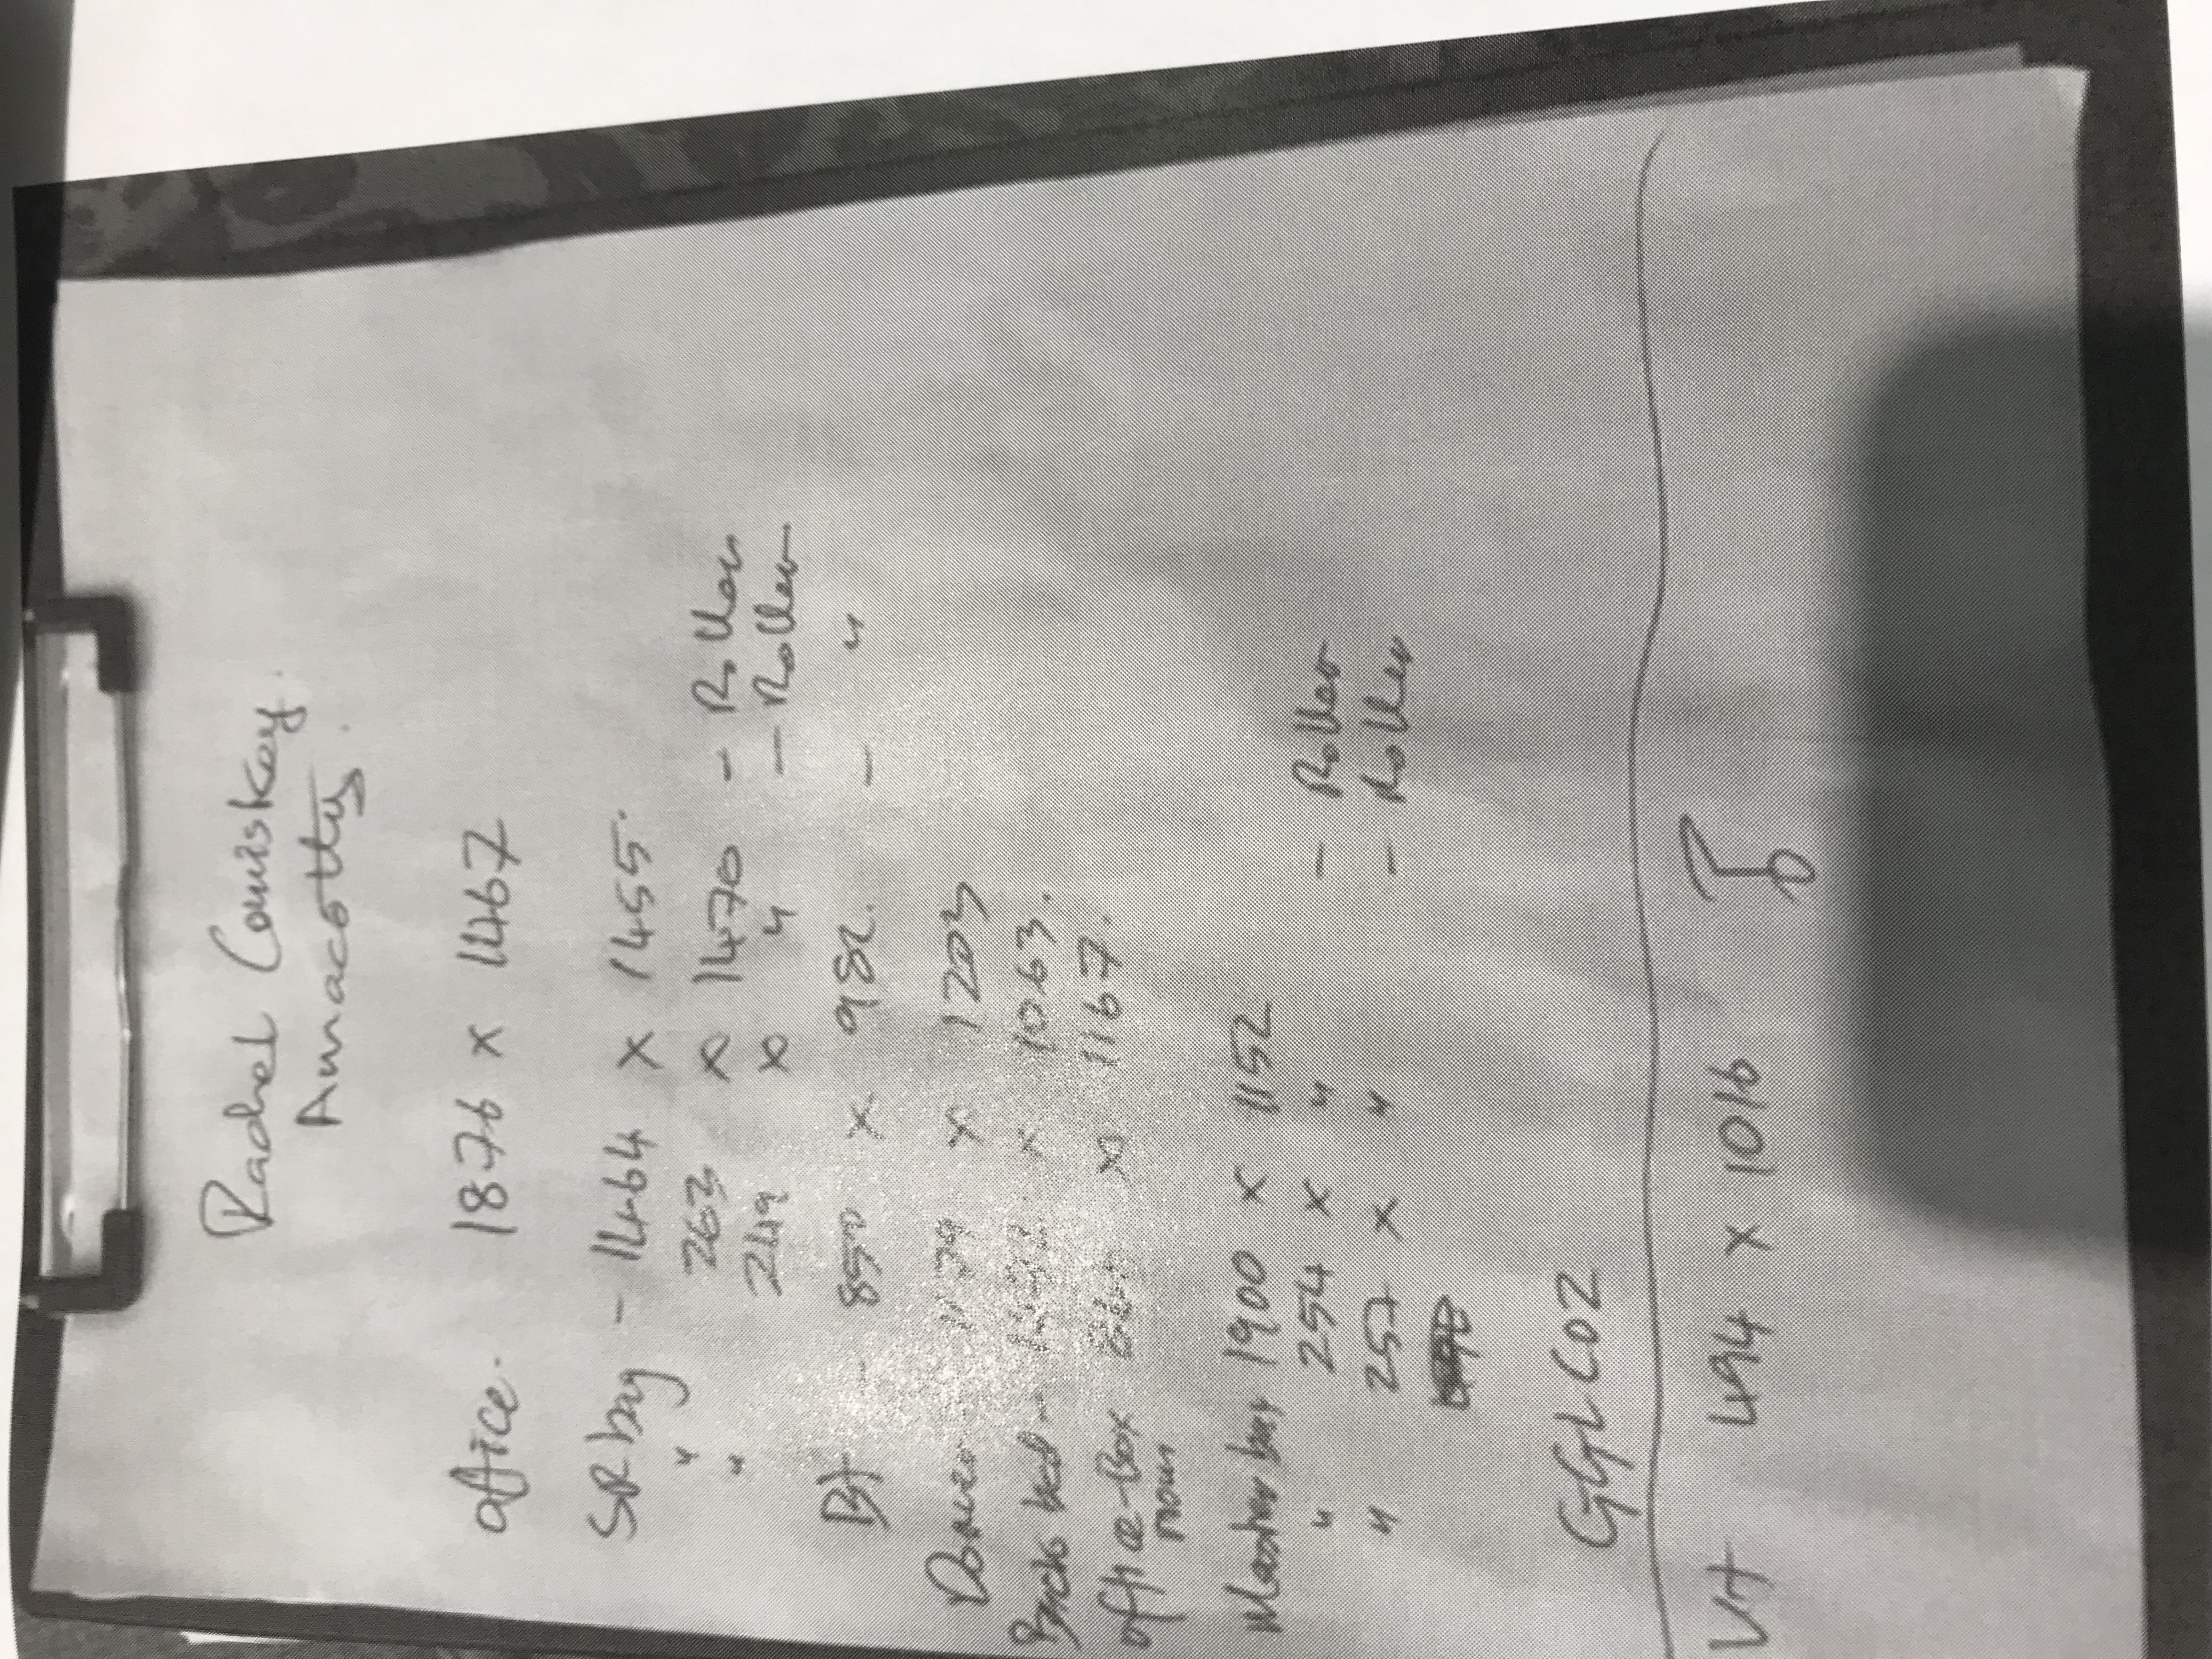 Rachel Comiskey.
Annacotty.
office. 1876 x 1467
SR bay - 1464 x 1455.
" 263 x 1470 - Roller
" 249 x " - Roller
Bt - 850 x 982. - "
x 1203
Back bed - x 1063.
office - Box room x 1167.
Master bay 1900 x 1152
" 254 x " - Roller
" 257 x " - Roller
GGL C02
Vt 494 x 1016